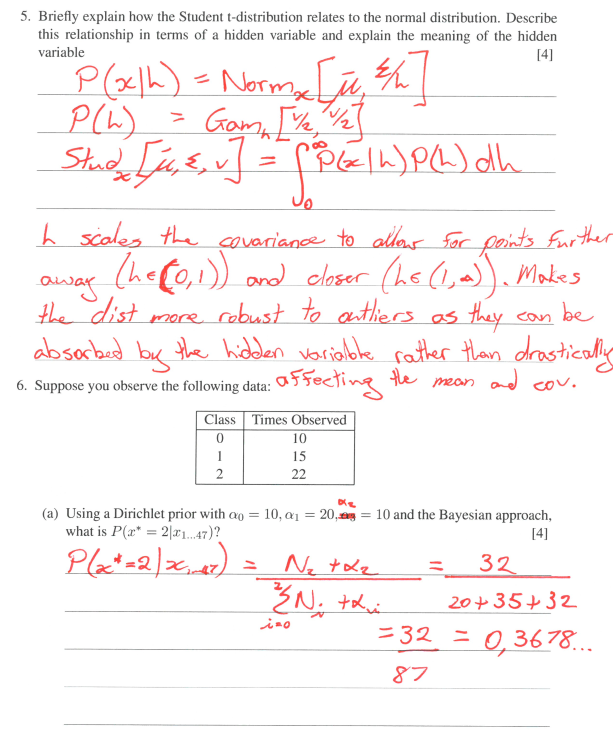 5. Briefly explain how the Student t-distribution relates to the normal distribution. Describe
this relationship in terms of a hidden variable and explain the meaning of the hidden
variable [4]
P(x|h) = Norm_x[μ, Σ/h]
P(h) = Gam_h[ν/2, ν/2]
Stud_x[μ, Σ, ν] = ∫_0^∞ P(x|h)P(h)dh
h scales the covariance to allow for points further
away (h∈(0,1)) and closer (h∈(1,∞)). Makes
the dist more robust to outliers as they can be
absorbed by the hidden variable rather than drastically
affecting the mean and cov.
6. Suppose you observe the following data:
Class Times Observed
0 10
1 15
2 22
(a) Using a Dirichlet prior with α0 = 10, α1 = 20, α2 = 10 and the Bayesian approach,
what is P(x* = 2|x1...47)? [4]
P(x*=2|x1...47) = (N2 + α2) / (Σ_{i=0}^{2} Ni + αi) = 32 / (20+35+32)
= 32/87 = 0,3678...